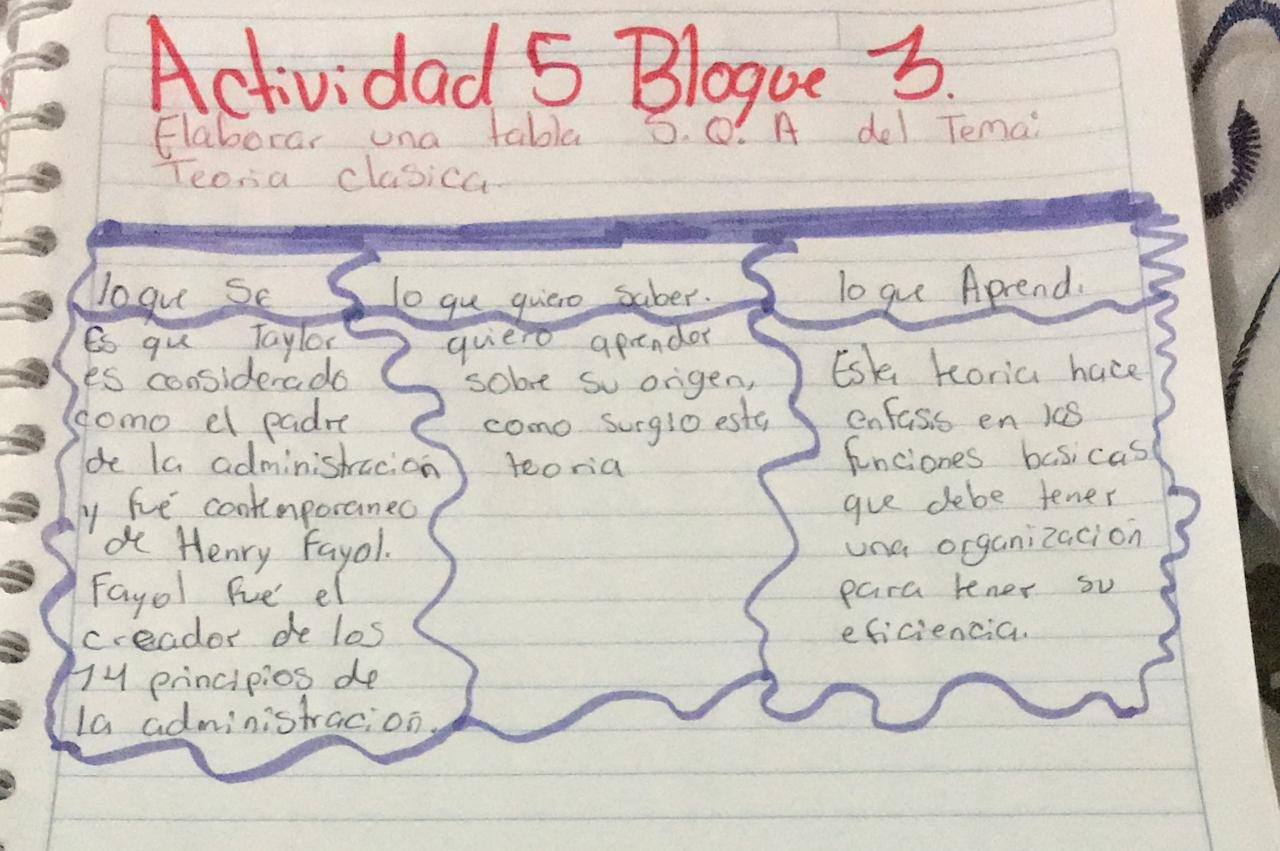 Actividad 5 Bloque 3.
Elaborar una tabla S.Q.A del Tema:
Teoria clasica.
lo que Se
Es que Taylor
es considerado
como el padre
de la administración
y fué contemporaneo
de Henry Fayol.
Fayol fué el
creador de los
14 principios de
la administración.
lo que quiero saber.
quiero aprender
sobre su origen,
como surgio esta
teoria
lo que Aprendi
Esta teoria hace
enfasis en las
funciones basicas
que debe tener
una organización
para tener su
eficiencia.